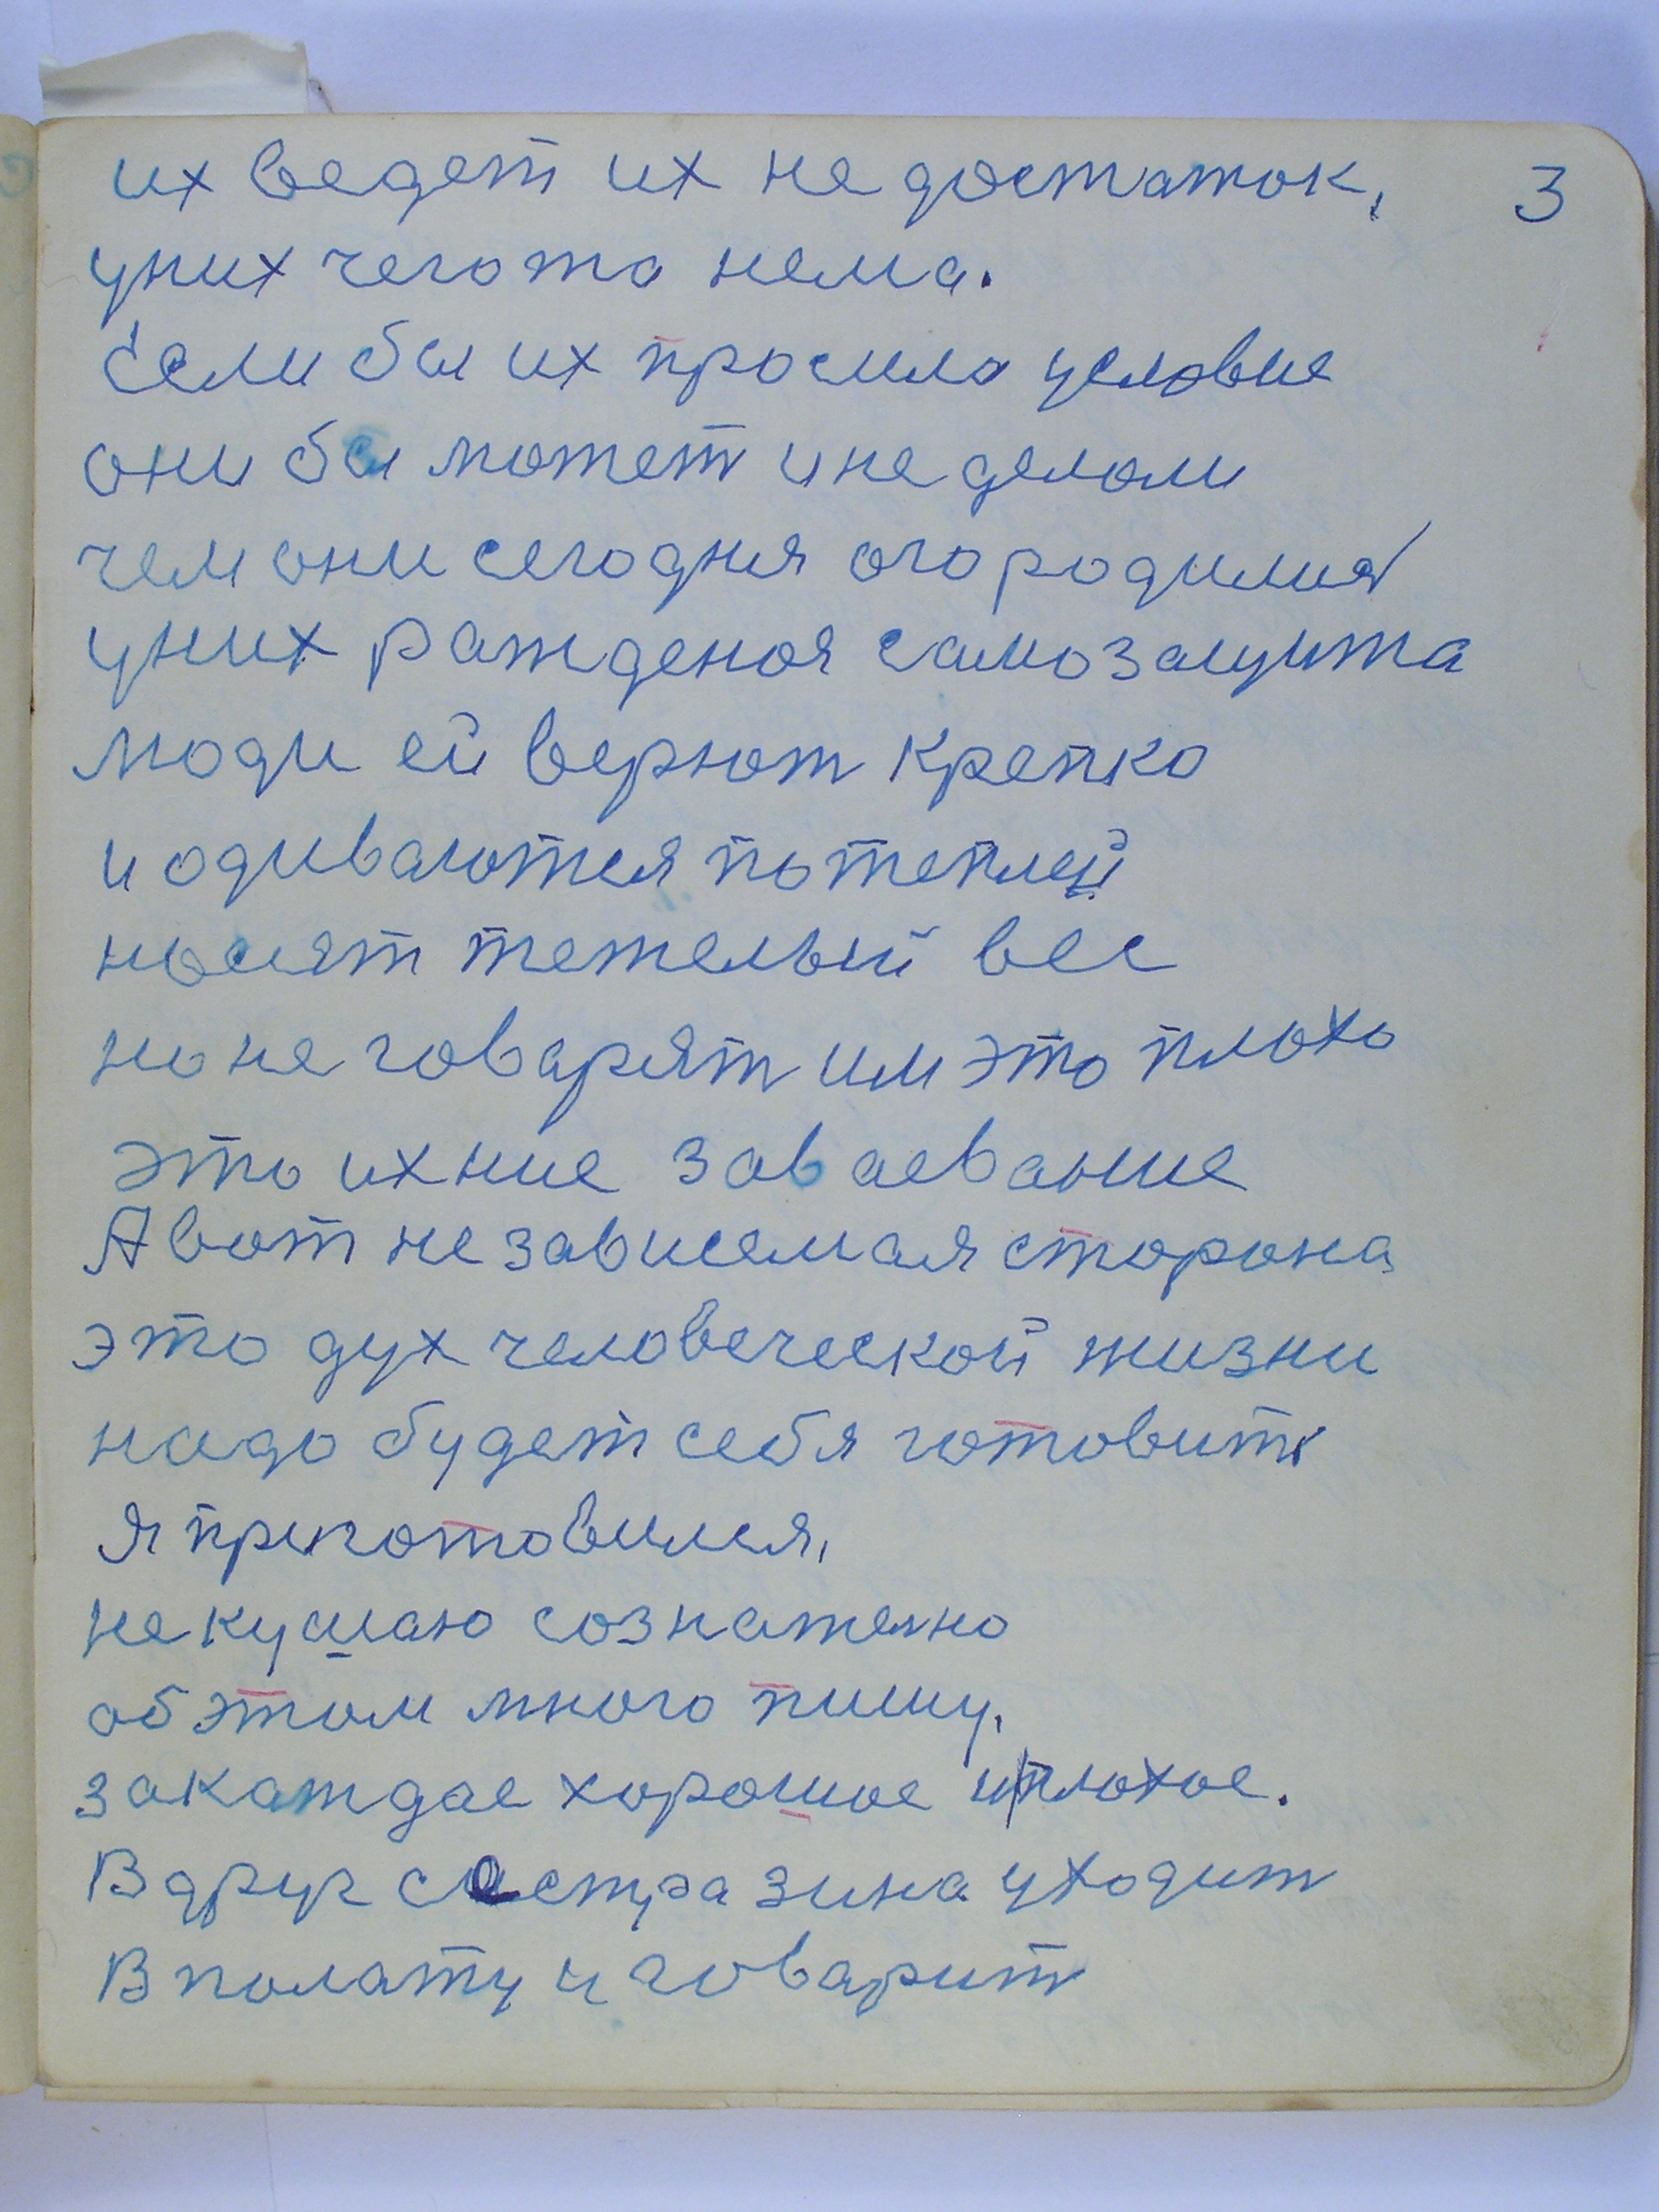 их ведет их не достаток,
3
уних чегото нема.
Если бы их просило условие
они бы может ине делали
чем они сегодня огородилися
уних ражденоя самозащита
люди ей верют крепко
и одиваются потеплей
носят тежелый вес
но не говарят им это плохо
это ихние заваевание
А вот не зависемая сторона
это дух человеческой жизни
надо будет себя готовить
я приготовился,
не кушаю сознателно
об этом много пишу,
за каждае хорошое и плохое.
Вдруг сестра зина уходит
В полату и говарит